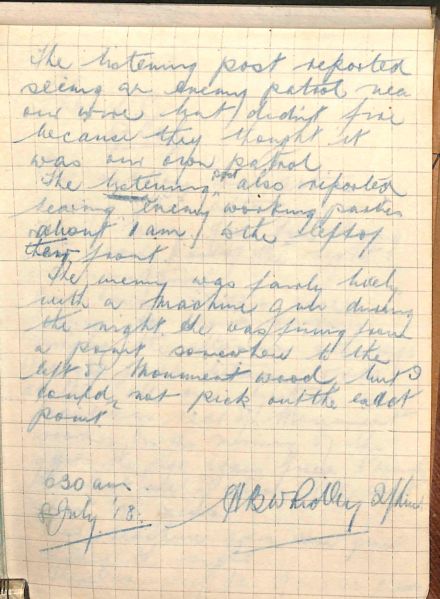 The listening post reported
seeing an enemy patrol near
our wire but didn't fire
because they thought it
was our own patrol
The listening post also reported
seeing enemy working parties
about 1 am to the left of
their front
The enemy was fairly lively
with a machine gun during
the night. He was firing from
a point somewhere to the
left of Monument wood, but I
could not pick out the exact
point.
630 am
8 July '18.